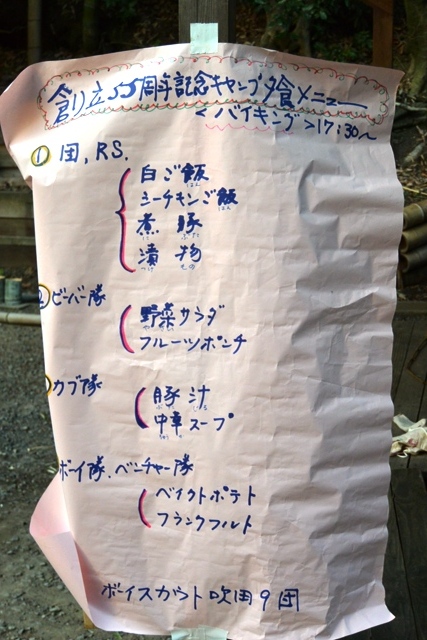 創立55周年記念キャンプ夕食メニュー
<バイキング>17:30～
① 団,RS.
白ご飯
はん
シーチキンご飯
はん
煮豚
にぶた
漬物
つけもの
②ビーバー隊
野菜サラダ
フルーツポンチ
カブ隊
豚汁
中華スープ
ボーイ隊、ベンチャー隊
ベイクトポテト
フランクフルト
ボーイスカウト吹田9団